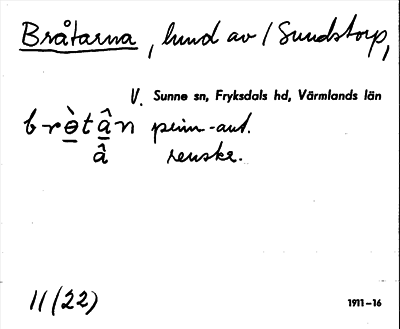 Bråtarna, lund av / Sundstorp,
V. Sunne sn, Fryksdals hd, Värmlands län
brɵ̀tân prim-ant.
â renskr.
11(22)
1911–16